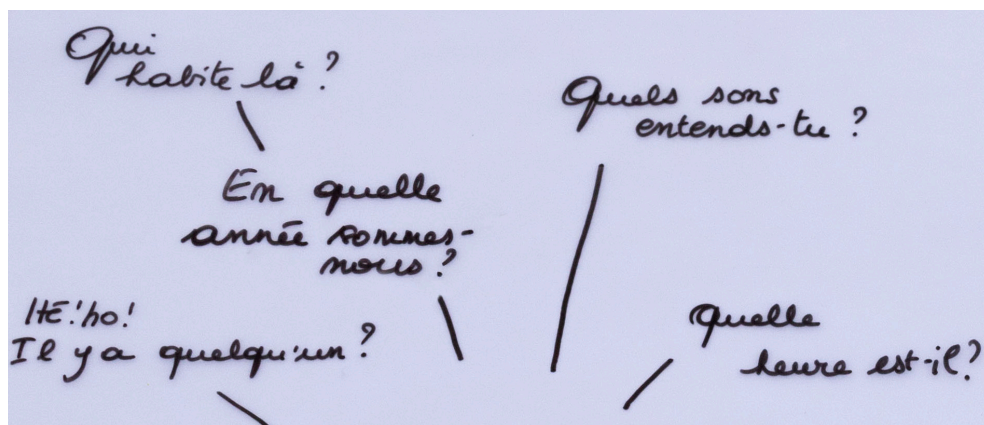 Qui
habite là ?
Quels sons
entends-tu ?
En quelle
année sommes-
nous ?
HÉ! ho!
Il y a quelqu'un ?
Quelle
heure est-il ?